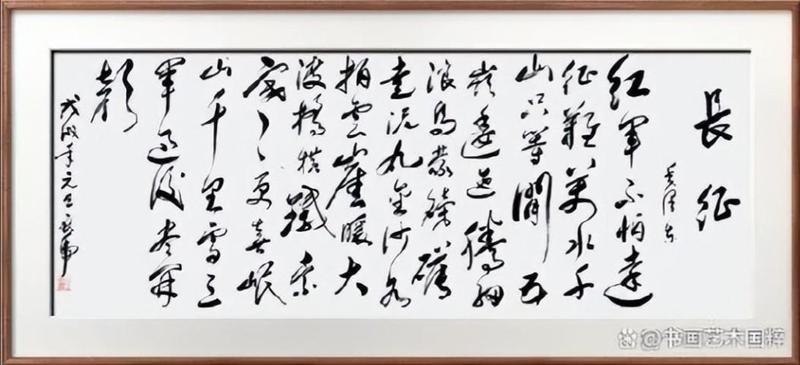 長征
毛泽东
红軍不怕遠
征難萬水千
山只等閒五
嶺逶迤騰細
浪烏蒙磅礴
走泥丸金沙水
拍雲崖暖大
渡橋横鐵索
寒更喜岷
山千里雪三
軍過後盡開
顏
戊戌年元旦
@书画艺术国粹